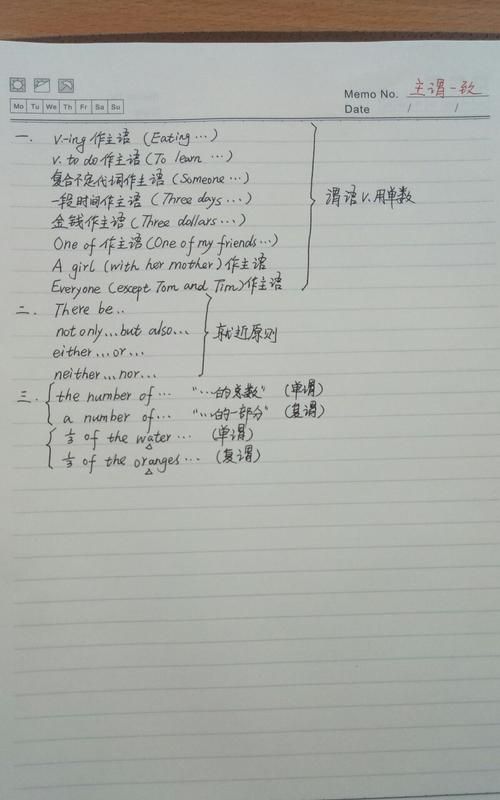 Memo No. 主谓一致
Mo Tu We Th Fr Sa Su
Date / /
一. v-ing 作主语 (Eating …)
v. to do 作主语 (To learn …)
复合不定代词作主语 (Someone …)
一段时间作主语 (Three days …)
谓语 v. 用单数
金钱作主语 (Three dollars …)
One of 作主语 (One of my friends …)
A girl (with her mother) 作主语
Everyone (except Tom and Tim) 作主语
二. There be ..
not only … but also …
就近原则
either … or …
neither … nor …
三. the number of … "…的总数" (单谓)
a number of … "…的一部分" (复谓)
1/3 of the water … (单谓)
1/3 of the oranges … (复谓)